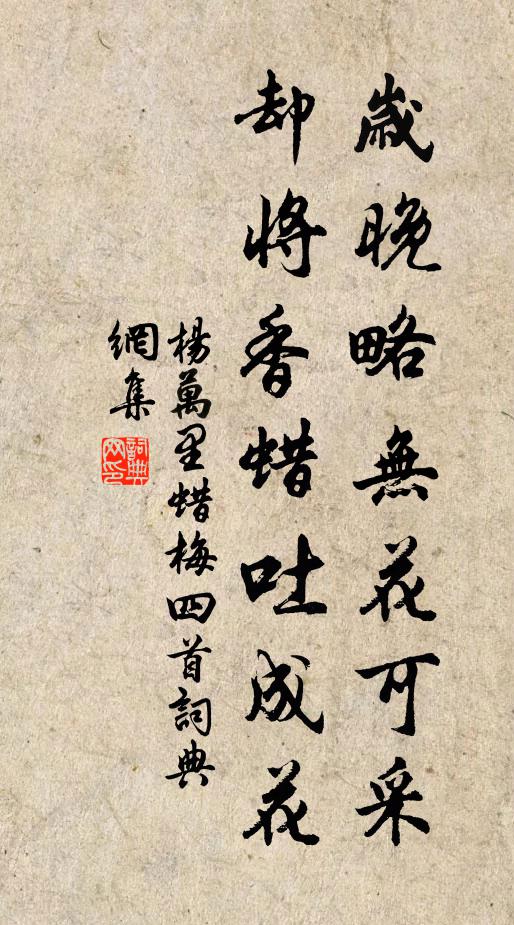 歲晚略無花可采
却將香蜡吐成花
楊萬里蜡梅四首詞典
網集
詞典
网印